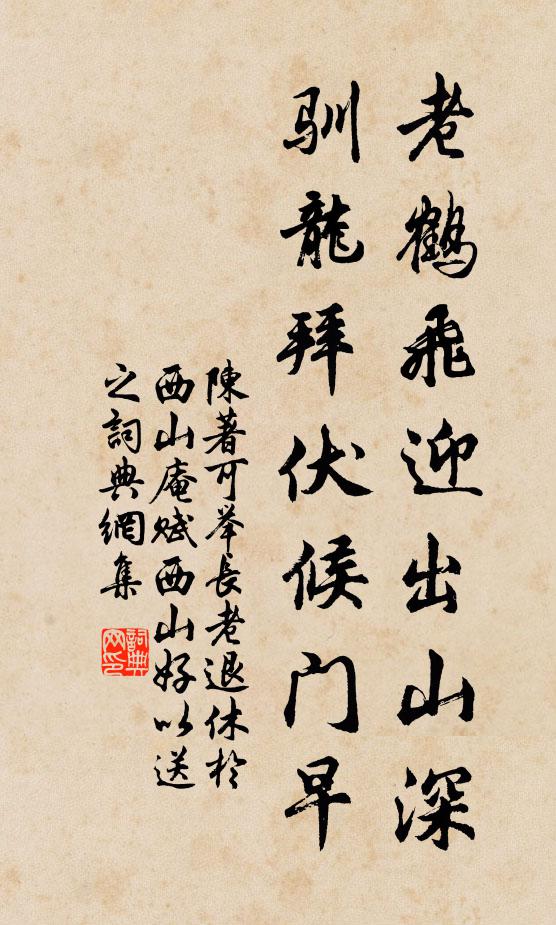 老鶴飛迎出山深
驯龍拜伏候门早
陳著可举長老退休於
西山庵赋西山好以送
之詞典網集
詞典网印